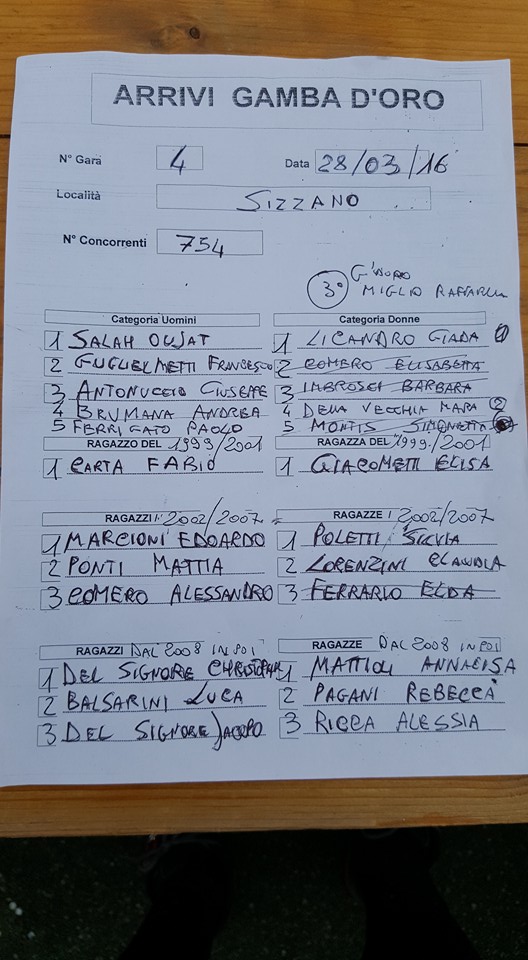 ARRIVI GAMBA D'ORO
N° Gara 4 Data 28/03/16
Località SIZZANO
N° Concorrenti 754
3° G. D'ORO
MIGLIO RAFFAELLA
Categoria Uomini
1 SALAH OUJAT
2 GUGLIELMETTI FRANCESCO
3 ANTONUCCIO GIUSEPPE
4 BRUMANA ANDREA
5 FERRIGATO PAOLO
Categoria Donne
1 LICANDRO GIADA 1
2 COMERO ELISABETTA
3 IMBROSCI BARBARA
4 DELLA VECCHIA MARA 2
5 MONTIS SIMONETTA
RAGAZZO DEL 1999/2001
1 CARTA FABIO
RAGAZZA DEL 1999/2001
1 GIACOMETTI ELISA
RAGAZZI 2002/2007
1 MARCIONI EDOARDO
2 PONTI MATTIA
3 COMERO ALESSANDRO
RAGAZZE 2002/2007
1 POLETTI SILVIA
2 LORENZINI CLAUDIA
3 FERRARIO ELDA
RAGAZZI DAL 2008 IN POI
1 DEL SIGNORE CHRISTOPHER
2 BALSARINI LUCA
3 DEL SIGNORE JACOPO
RAGAZZE DAL 2008 IN POI
1 MATTIOLI ANNALISA
2 PAGANI REBECCA
3 RICCA ALESSIA